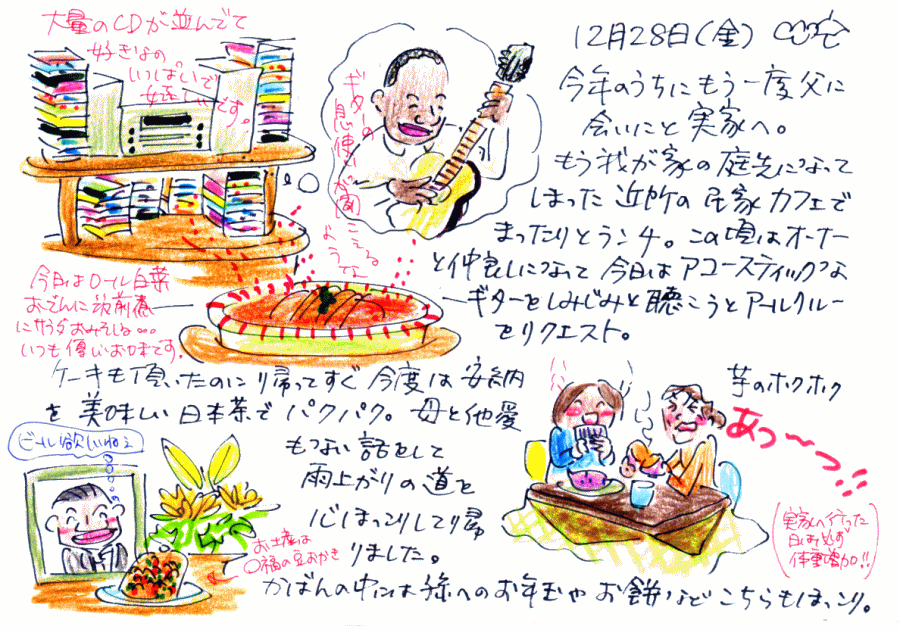 12月28日(金)
今年のうちにもう一度父に
会いにと実家へ。
もう我が家の庭先になって
しまった近所の民家カフェで
まったりとランチ。この頃はオーナー
と仲良しになって今日はアコースティックな
ギターをしみじみと聴こうとアールクルー
をリクエスト。
大量のCDが並んでて
好きなの
いっぱいで
です。
ギターの
息使いが聞
こえる
ような
今日はロール白菜
おでんに
いつも優しいお味です。
ケーキも頂いたのに帰ってすぐ今度は安納
を美味しい日本茶でパクパク。母と他愛
もない話をして
雨上がりの道を
心ほっこりして帰
りました。
かばんの中には孫へのお年玉やお餅などこちらもほっこり。
芋のホクホク
あっ〜〜っ!!
実家へ行った
日は必ず
体重増加!!
ビール欲しいねぇ
お土産は
〇福の豆おかき